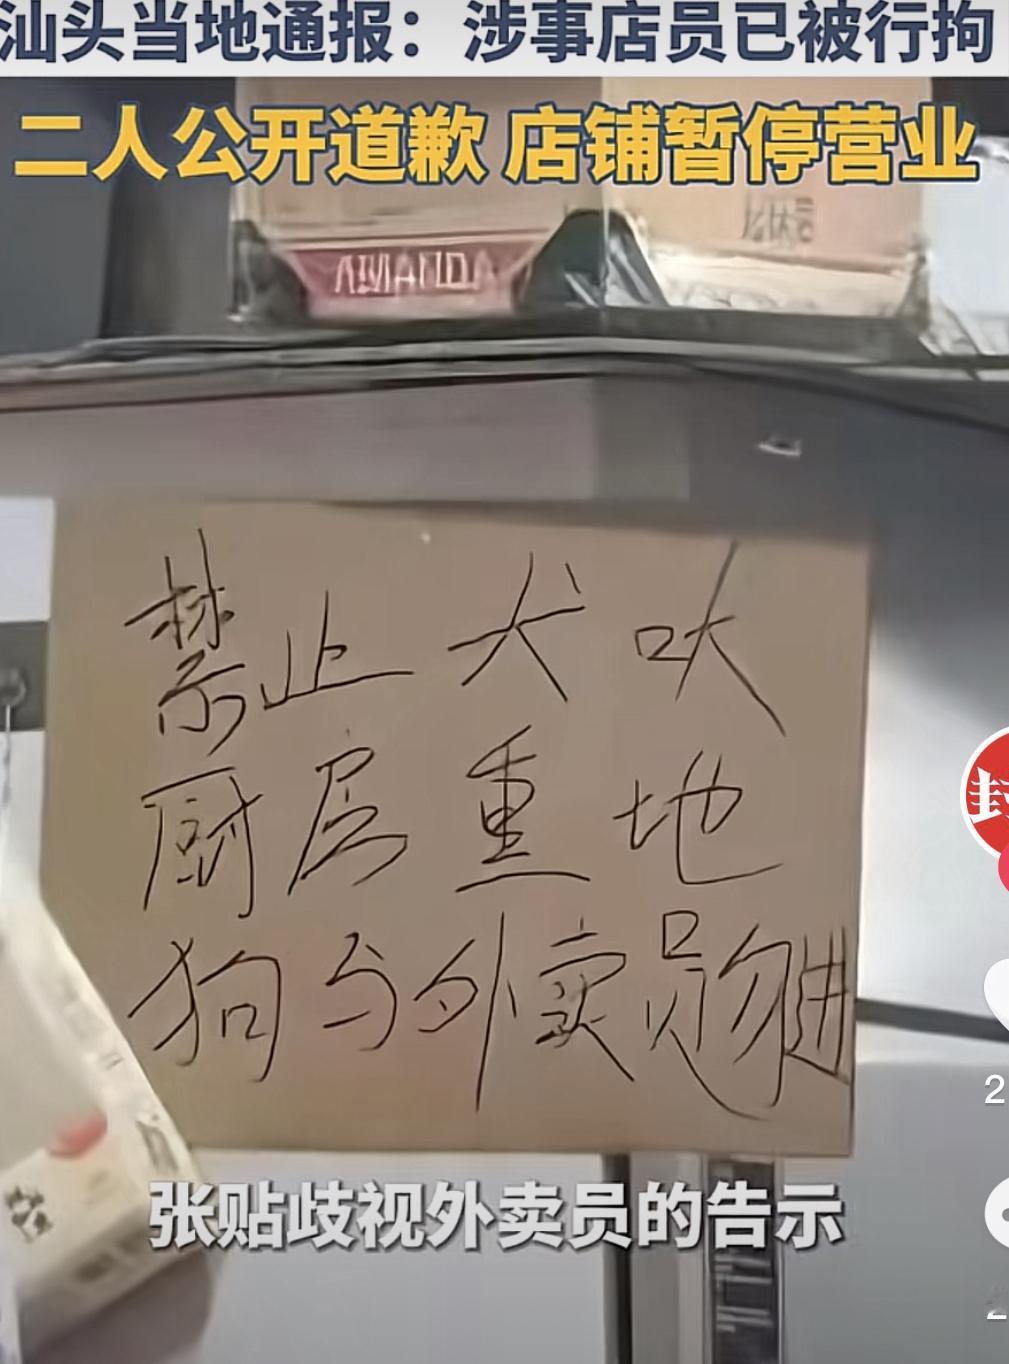 汕头当地通报：涉事店员已被行拘
二人公开道歉 店铺暂停营业
禁止犬吠
厨房重地
狗与外卖员勿进
张贴歧视外卖员的告示